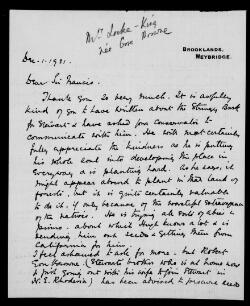 Mrs Locke-King
née Gore Browne
BROOKLANDS,
WEYBRIDGE.
Dec. 1. 1921.
Dear Sir Francis.
Thank you so very much. It is awfully
kind of you to have written about the Stinging Bark
for Stewart & have asked your Conservator to
communicate with him. He will most certainly
fully appreciate the kindness as he is putting
his whole soul into developing the place in
every way & is planting hard. As he says, it
might appear absurd to plant in that land of
forests, but it is quite certainly valuable
to do it, if only because of the wasteful extravagance
of the natives. He is trying all sorts of
pines. about which Hugh knows a lot & is
sending him out seeds & getting them from
California for him.
I feel ashamed to ask for more, but Robert
Gore Browne (Stewart's brother who is at home now
& just going out with his wife to join Stewart in
N. E. Rhodesia) has been advised to procure seeds